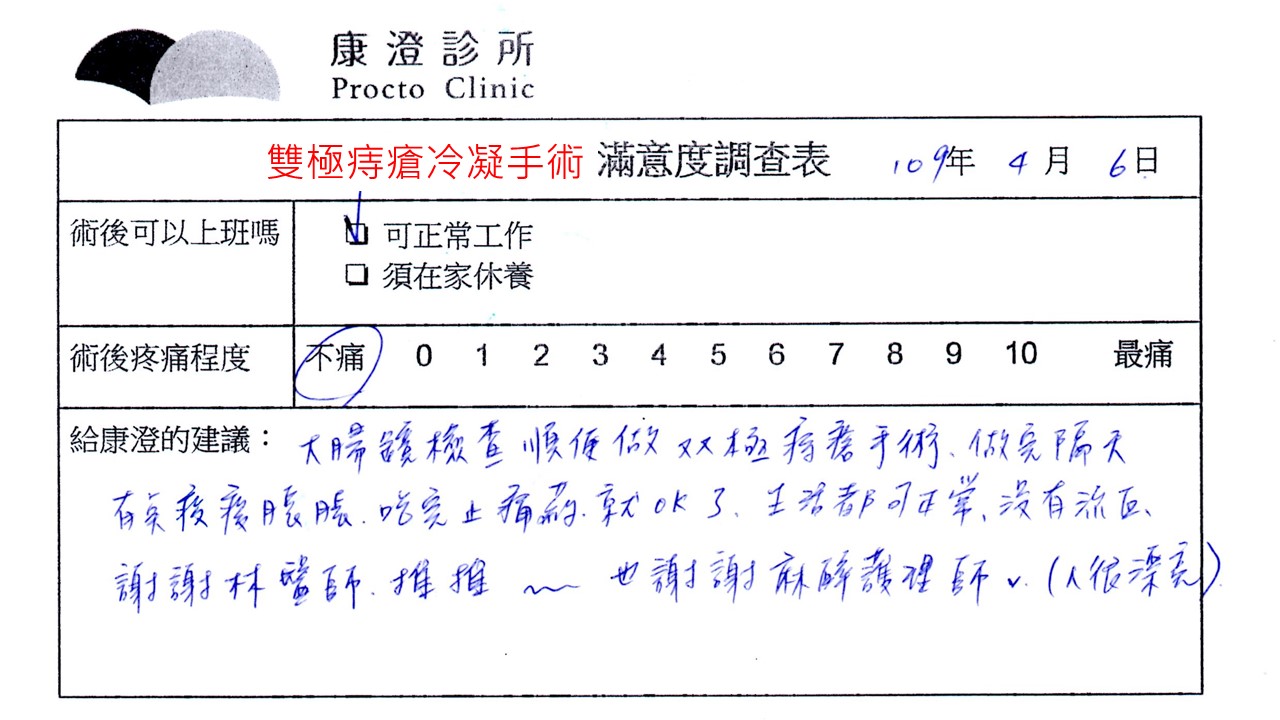 康澄診所
Procto Clinic
雙極痔瘡冷凝手術 滿意度調查表 109年 4月 6日
術後可以上班嗎 可正常工作
須在家休養
術後疼痛程度 不痛 0 1 2 3 4 5 6 7 8 9 10 最痛
給康澄的建議： 大腸鏡檢查順便做双极痔瘡手術、做完隔天
有点痠痠脹脹.吃完止痛葯.就OK了、生活都可正常、沒有流血、
謝謝林醫師.推推~~ 也謝謝麻醉護理師v.(人很漂亮).